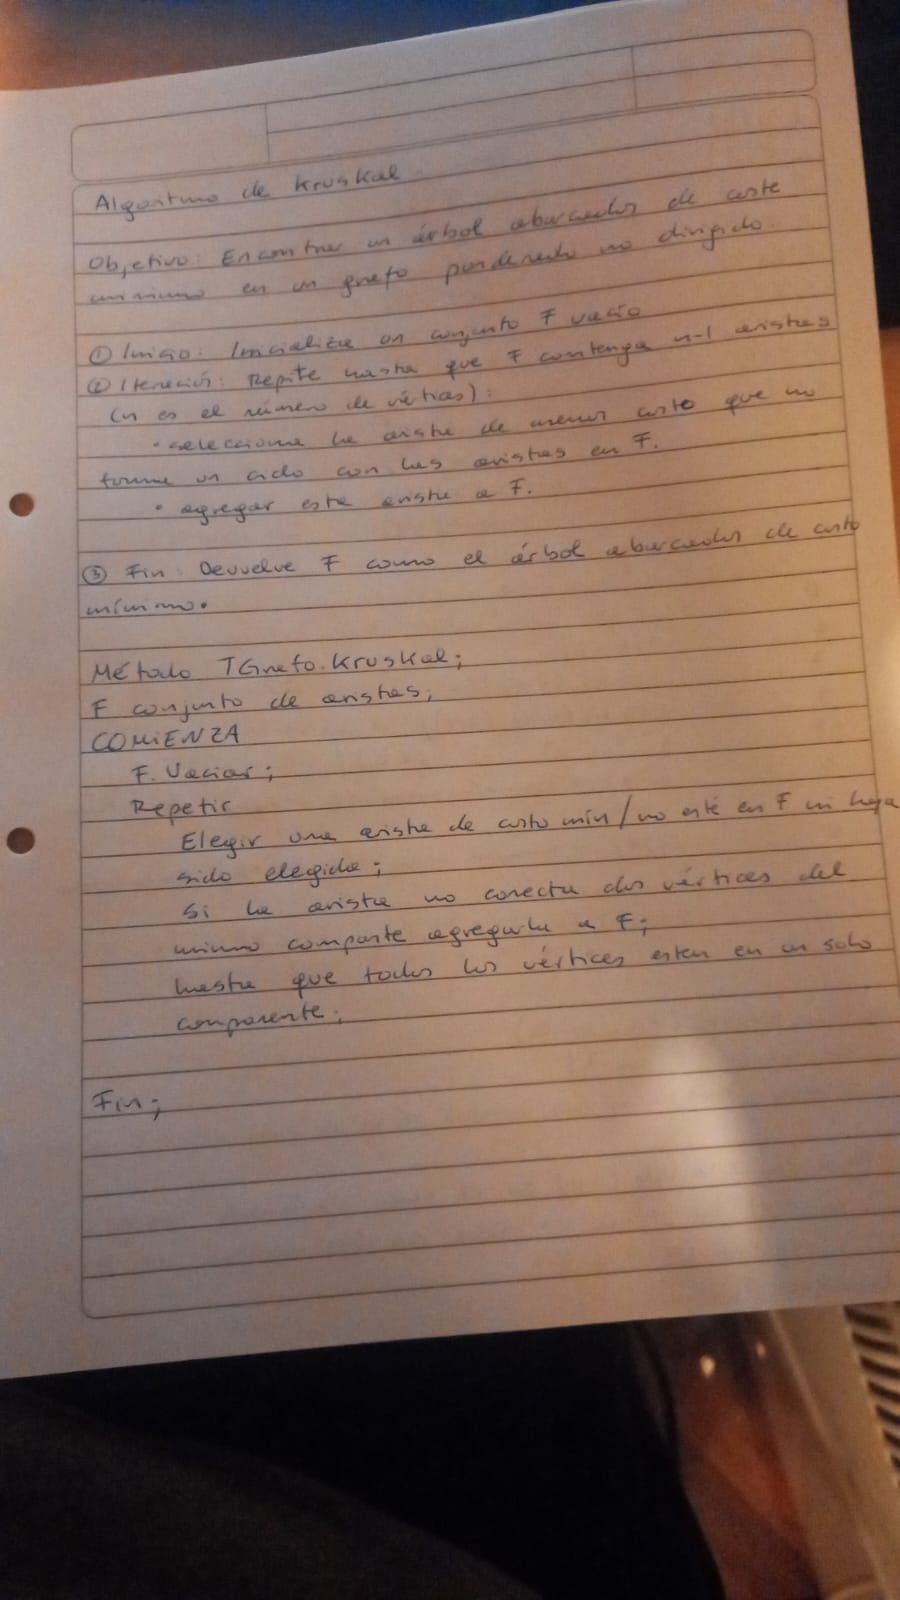 Algoritmo de Kruskal
Objetivo: Encontrar un árbol abarcador de coste
mínimo en un grafo ponderado no dirigido.
① Inicio: Inicializa un conjunto F vacío
② Iteración: Repite hasta que F contenga n-1 aristas
(n es el número de vértices):
• selecciona la arista de menor costo que no
forme un ciclo con las aristas en F.
• agregar esta arista a F.
③ Fin: Devuelve F como el árbol abarcador de costo
mínimo.
Método TGrafo.Kruskal;
F conjunto de aristas;
COMIENZA
F. Vaciar;
Repetir
Elegir una arista de costo mín/no esté en F ni haya
sido elegida;
Si la arista no conecta dos vértices del
mismo componte agregarla a F;
hasta que todos los vértices esten en un solo
componente;
Fin;